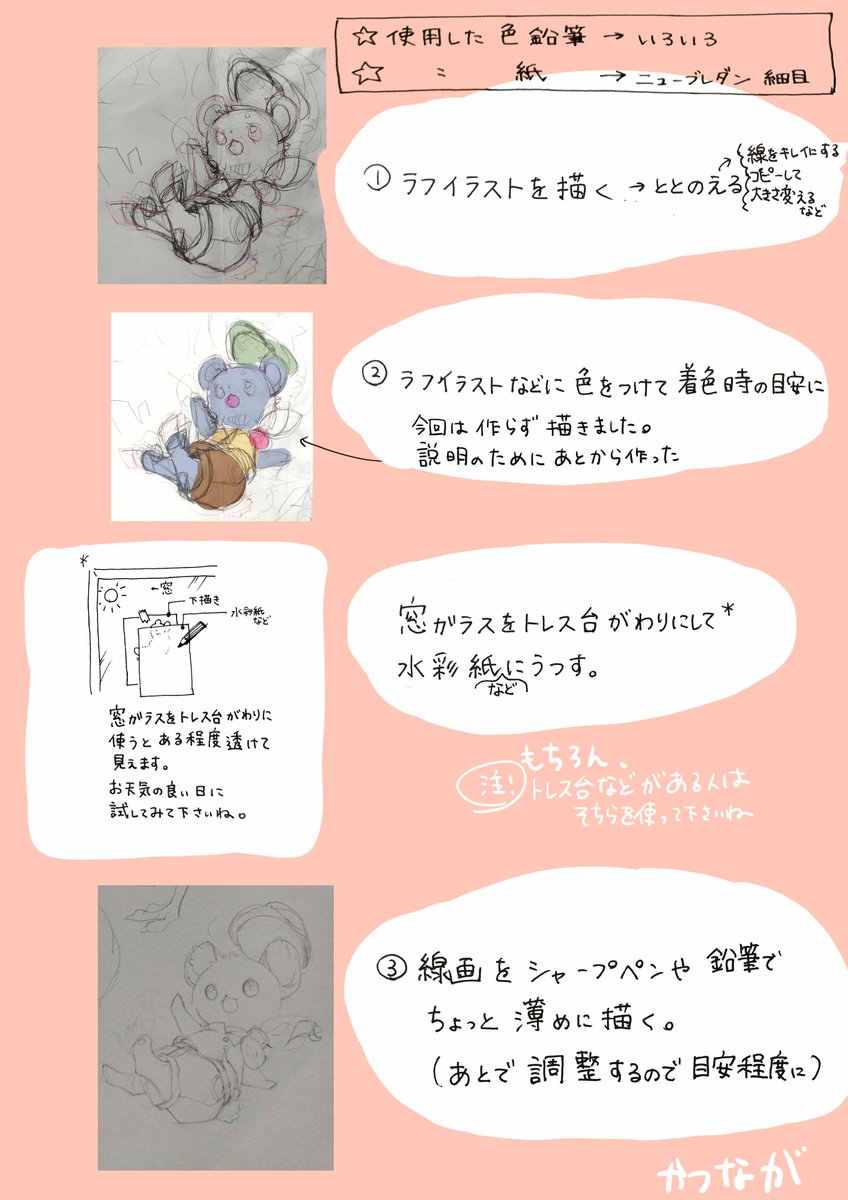 ☆使用した色鉛筆→いろいろ
☆ 〃 紙 →ニューブレダン 細目
①ラフイラストを描く→ととのえる
線をキレイにする
コピーして
大きさ変える
など
②ラフイラストなどに色をつけて着色時の目安に
今回は作らず描きました。
説明のためにあとから作った
*
←窓
下描き
水彩紙
など
窓ガラスをトレス台がわりに
使うとある程度透けて
見えます。
お天気の良い日に
試してみて下さいね。
窓ガラスをトレス台がわりにして*
水彩紙にうつす。
など
注!
もちろん、
トレス台などがある人は
そちらを使って下さいね
③線画をシャープペンや鉛筆で
ちょっと薄めに描く。
(あとで調整するので目安程度に)
かつなが